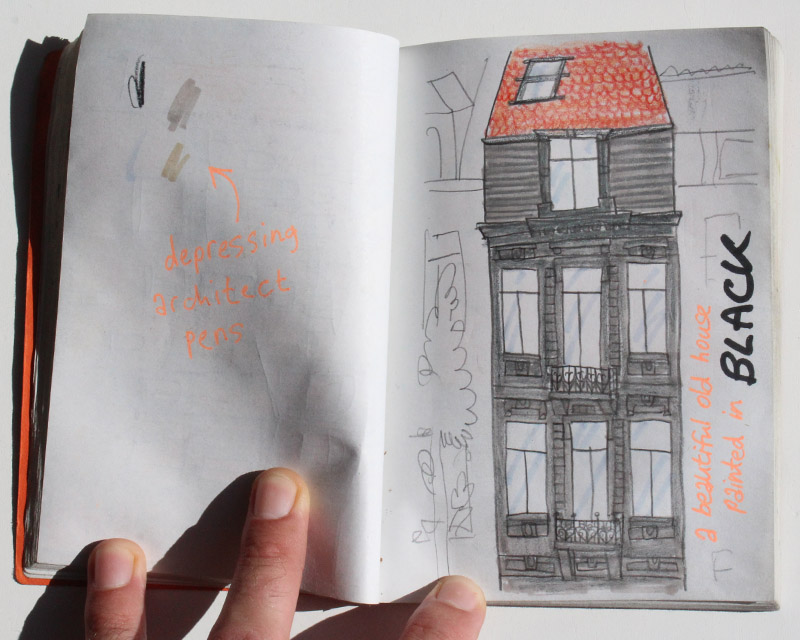 depressing
architect
pens
a beautiful old house
painted in BLACK